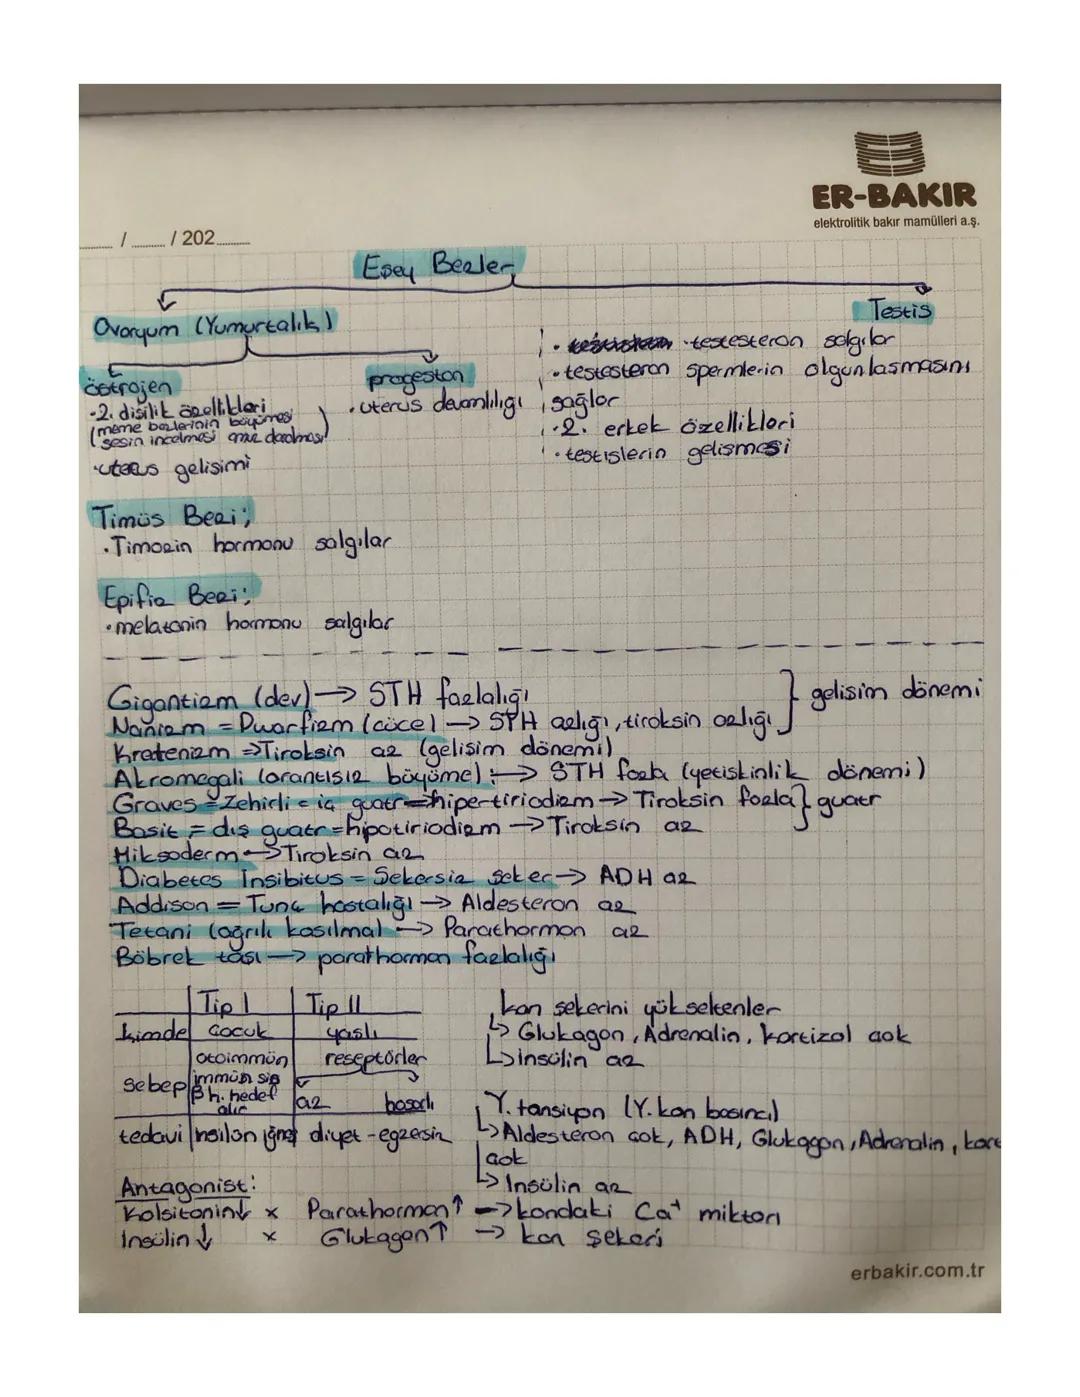 ER-BAKIR
elektrolitik bakır mamülleri a.ş.
/ / 202
Eşey Bezler
Ovaryum (Yumurtalık)
Testis
östrojen
-2. dişilik özellikleri
(meme bezlerinin büyümesi
sesin incelmesi omuz daralması)
·uterus gelişimi
progeston
·uterus devamlılığı
· testesteron salgılar
·testesteron spermlerin olgunlasmasını
sağlar
·2. erkek özellikleri
·testislerin gelişmesi
Timüs Bezi;
·Timozin hormonu salgılar
Epifiz Bezi;
·melatonin hormonu salgılar
Gigantizm (dev) → STH fazlalığı
Nanizm = Dwarfizm (cüce) → STH azlığı, tiroksin azlığı } gelisim dönemi
Kretenizm ⇒ Tiroksin az (gelisim dönemi)
Akromegali (orantısız büyüme) : → STH fazla (yetiskinlik dönemi)
Graves = Zehirli = iç guatr = hipertiriodizm → Tiroksin fazla } guatr
Basit = dış guatr = hipotiriodizm → Tiroksin az
Miksoderm → Tiroksin az
Diabetes İnsibitus = Sekersiz seker → ADH az
Addison = Tunç hastalığı → Aldesteron az
Tetani (ağrılı kasılma) → Parathormon az
Böbrek tası → parathormon fazlalığı
Tip I Tip II
kimde cocuk yaslı
sebep otoimmün reseptörler
immün sis
β h. hedef az hasarlı
alır
tedavi İnsilün iğne diyet-egzersiz
kan sekerini yükseltenler
↳ Glukagon, Adrenalin, kortizol çok
↳ insülin az
Y. tansiyon (Y. kan basıncı)
↳ Aldesteron çok, ADH, Glukagon, Adrenalin,
çok
↳ İnsülin az
Antagonist:
Kalsitonin↓ x Parathormon↑ → kandaki Ca⁺ miktarı
İnsülin↓ x Glukagon↑ → kan şekeri
erbakir.com.tr